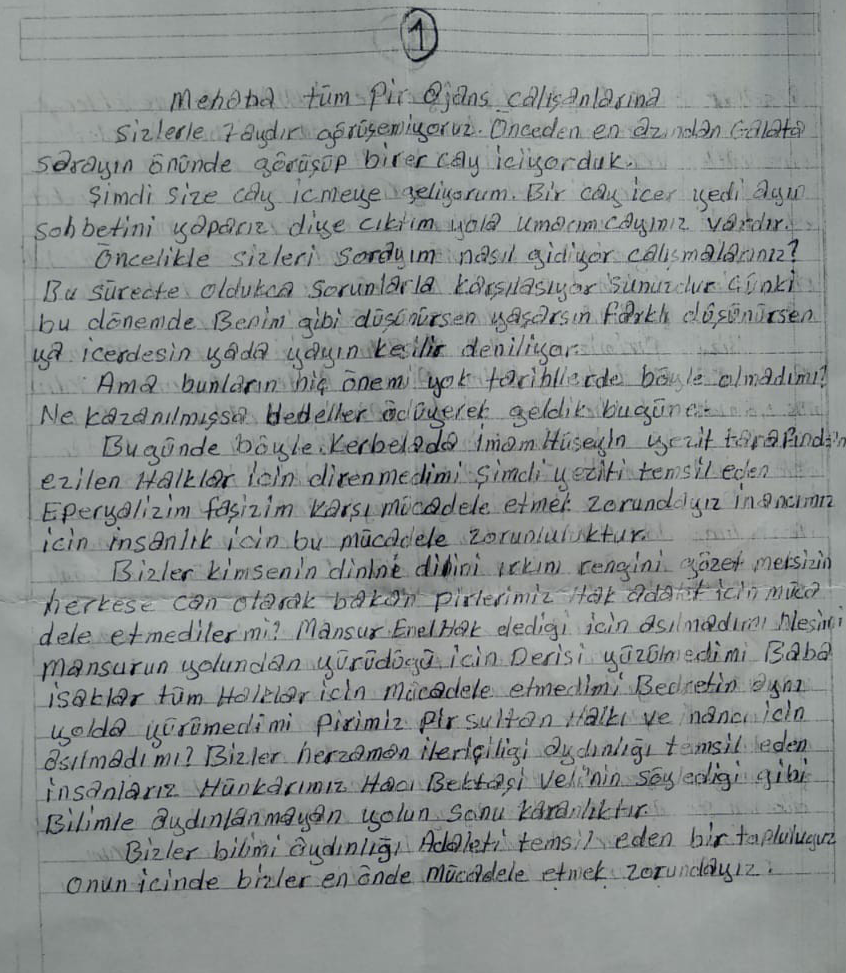 1
Mehaba tüm Pir Ajans calışanlarına
Sizlerle 7 aydır görüşemiyoruz. Önceden en azından Galata
sarayın önünde görüşüp birer cay iciyorduk.
Şimdi size cay icmeye geliyorum. Bir cay icer yedi ayın
sohbetini yaparız diye cıktım yola umarım cayınız vardır.
Öncelikle sizleri sorayım nasıl gidiyor calışmalarınız?
Bu sürecte oldukca sorunlarla karşılasıyor sunuzdur Cünki
bu dönemde Benim gibi düşünürsen yaşarsın farklı düşünürsen
ya icerdesin yada yayın kesilir deniliyor.
Ama bunların hiç önemi yok tarihllerde böyle olmadımı?
Ne kazanılmışsa bedeller ödüyerek geldik bugüne.
Bugünde böyle. Kerbelada imam Hüseyin yezit tarafından
ezilen Halklar icin direnmedimi şimdi yeziti temsil eden
Eperyalizim faşizim karşı mücadele etmek zorundayız inancımız
icin insanlık icin bu mücadele zorunluluktur.
Bizler kimsenin dinine dilini ırkını rengini gözet meksizin
herkese can olarak bakan pirlerimiz Hak adalet icin müca
dele etmediler mi? Mansur Enel Hak dedigi icin asılmadımı Nesimi
mansurun yolundan yürüdügü icin Derisi yüzülmedimi Baba
isaklar tüm Halklar icin mücadele etmedimi Bedretin aynı
yolda yürümedimi Pirimiz Pir sultan Halkı ve nancı icin
asılmadı mı? Bizler herzaman ileriçiligi aydınlığı temsil eden
insanlarız Hünkarımız Hacı Bektaşi Veli'nin söyledigi gibi
Bilimle aydınlanmayan yolun sonu karanlıktır.
Bizler bilimi aydınlığı Adaleti temsil eden bir topluluguz
onun icinde bizler en önde mücadele etmek zorundayız.